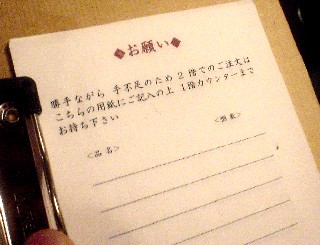 ◆お願い◆
勝手ながら 手不足のため2階でのご注文は
こちらの用紙にご記入の上 1階カウンターまで
お持ち下さい
<品名> <個数>